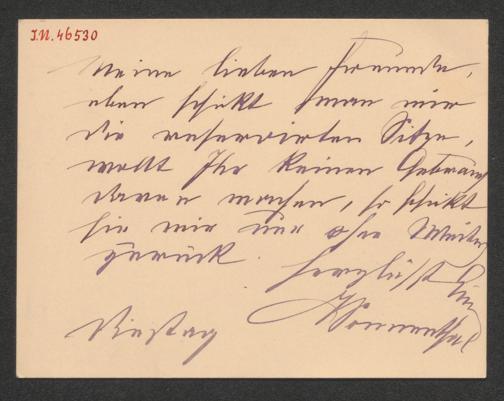 I.N. 46530
Meine lieben Freunde,
eben schickt man mir
die reservirten Sitze,
wollt Ihr keinen Gebrauch
davon machen, so schickt
sie mir nur ohne Weiteres
zurück. Herzlichst Eur
Sonnenthal
Dienstag